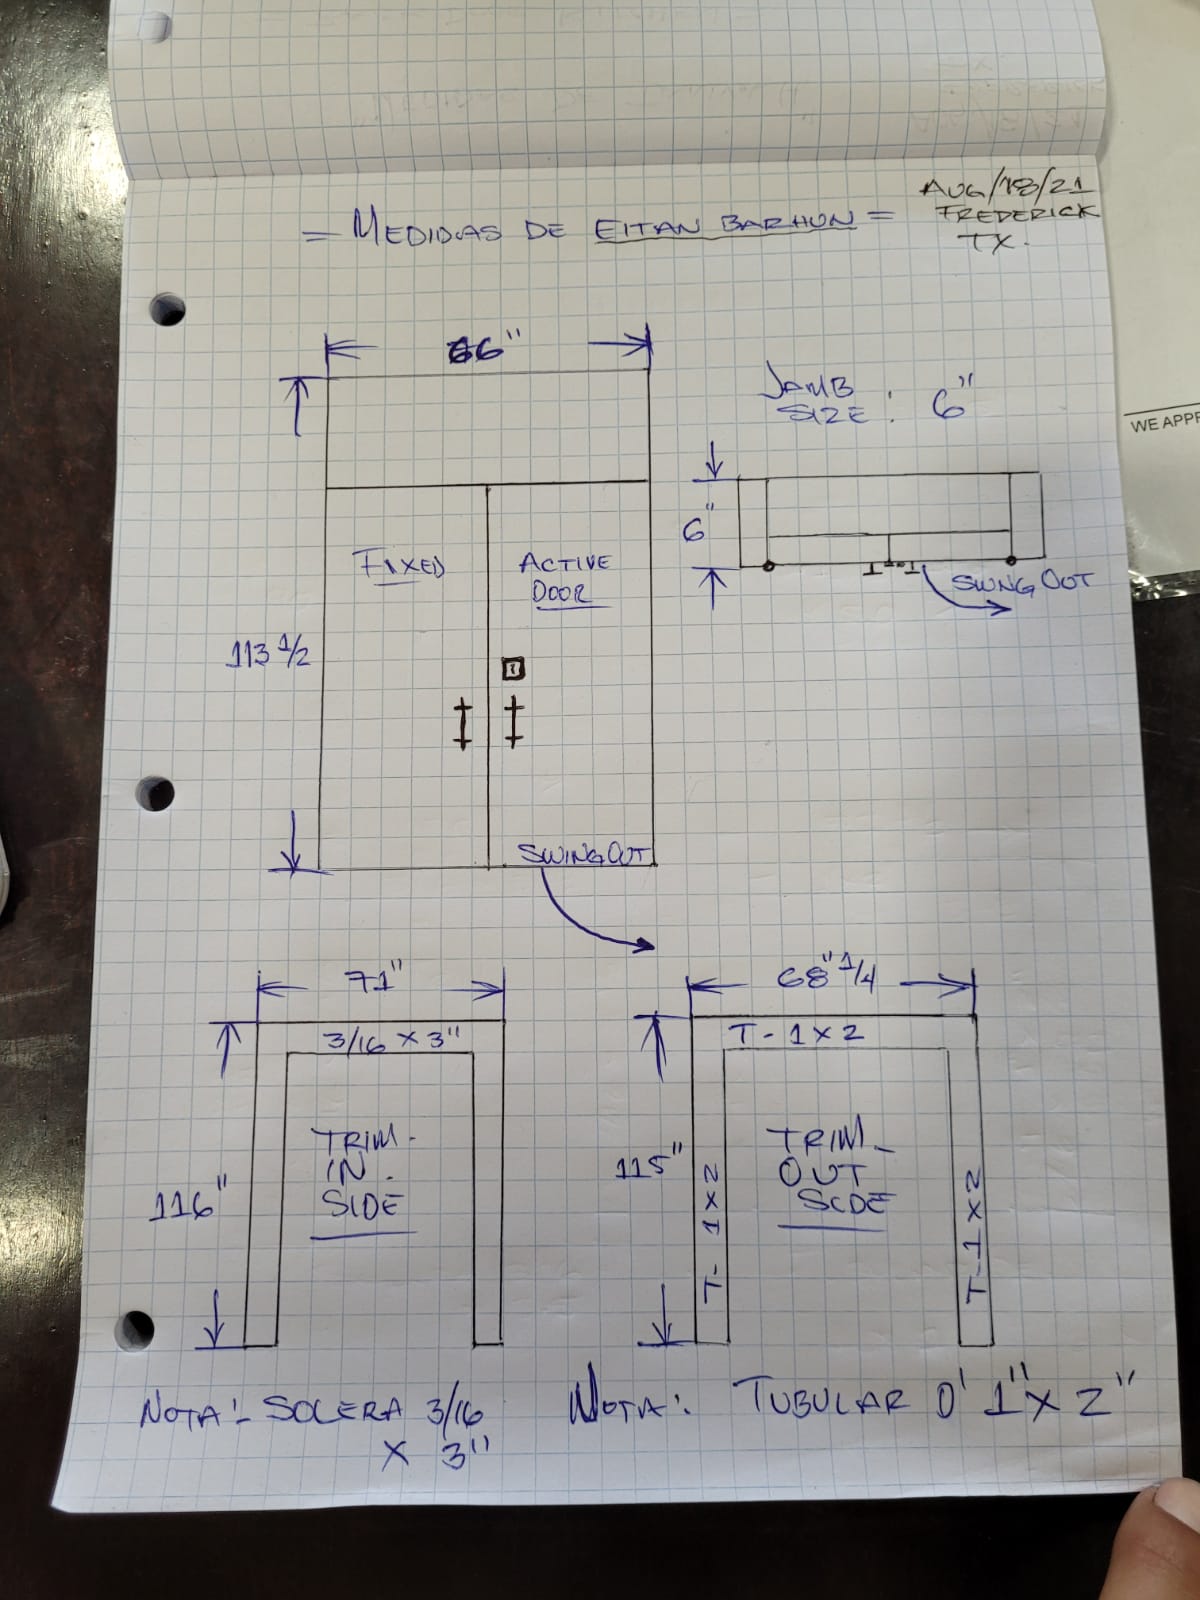 = MEDIDAS DE EITAN BARHUN =
AUG/18/21
FREDERICK
TX.
66"
JAMB
SIZE: 6"
6"
FIXED
ACTIVE
DOOR
SWING OUT
113 1/2
SWING OUT
71"
3/16 X 3"
TRIM-
IN.
SIDE
116"
68" 1/4
T - 1 X 2
TRIM-
OUT
SIDE
115"
T- 1 X 2
T-1 X 2
NOTA:- SOLERA 3/16
X 3"
NOTA:. TUBULAR D' 1" X 2"
WE APPR